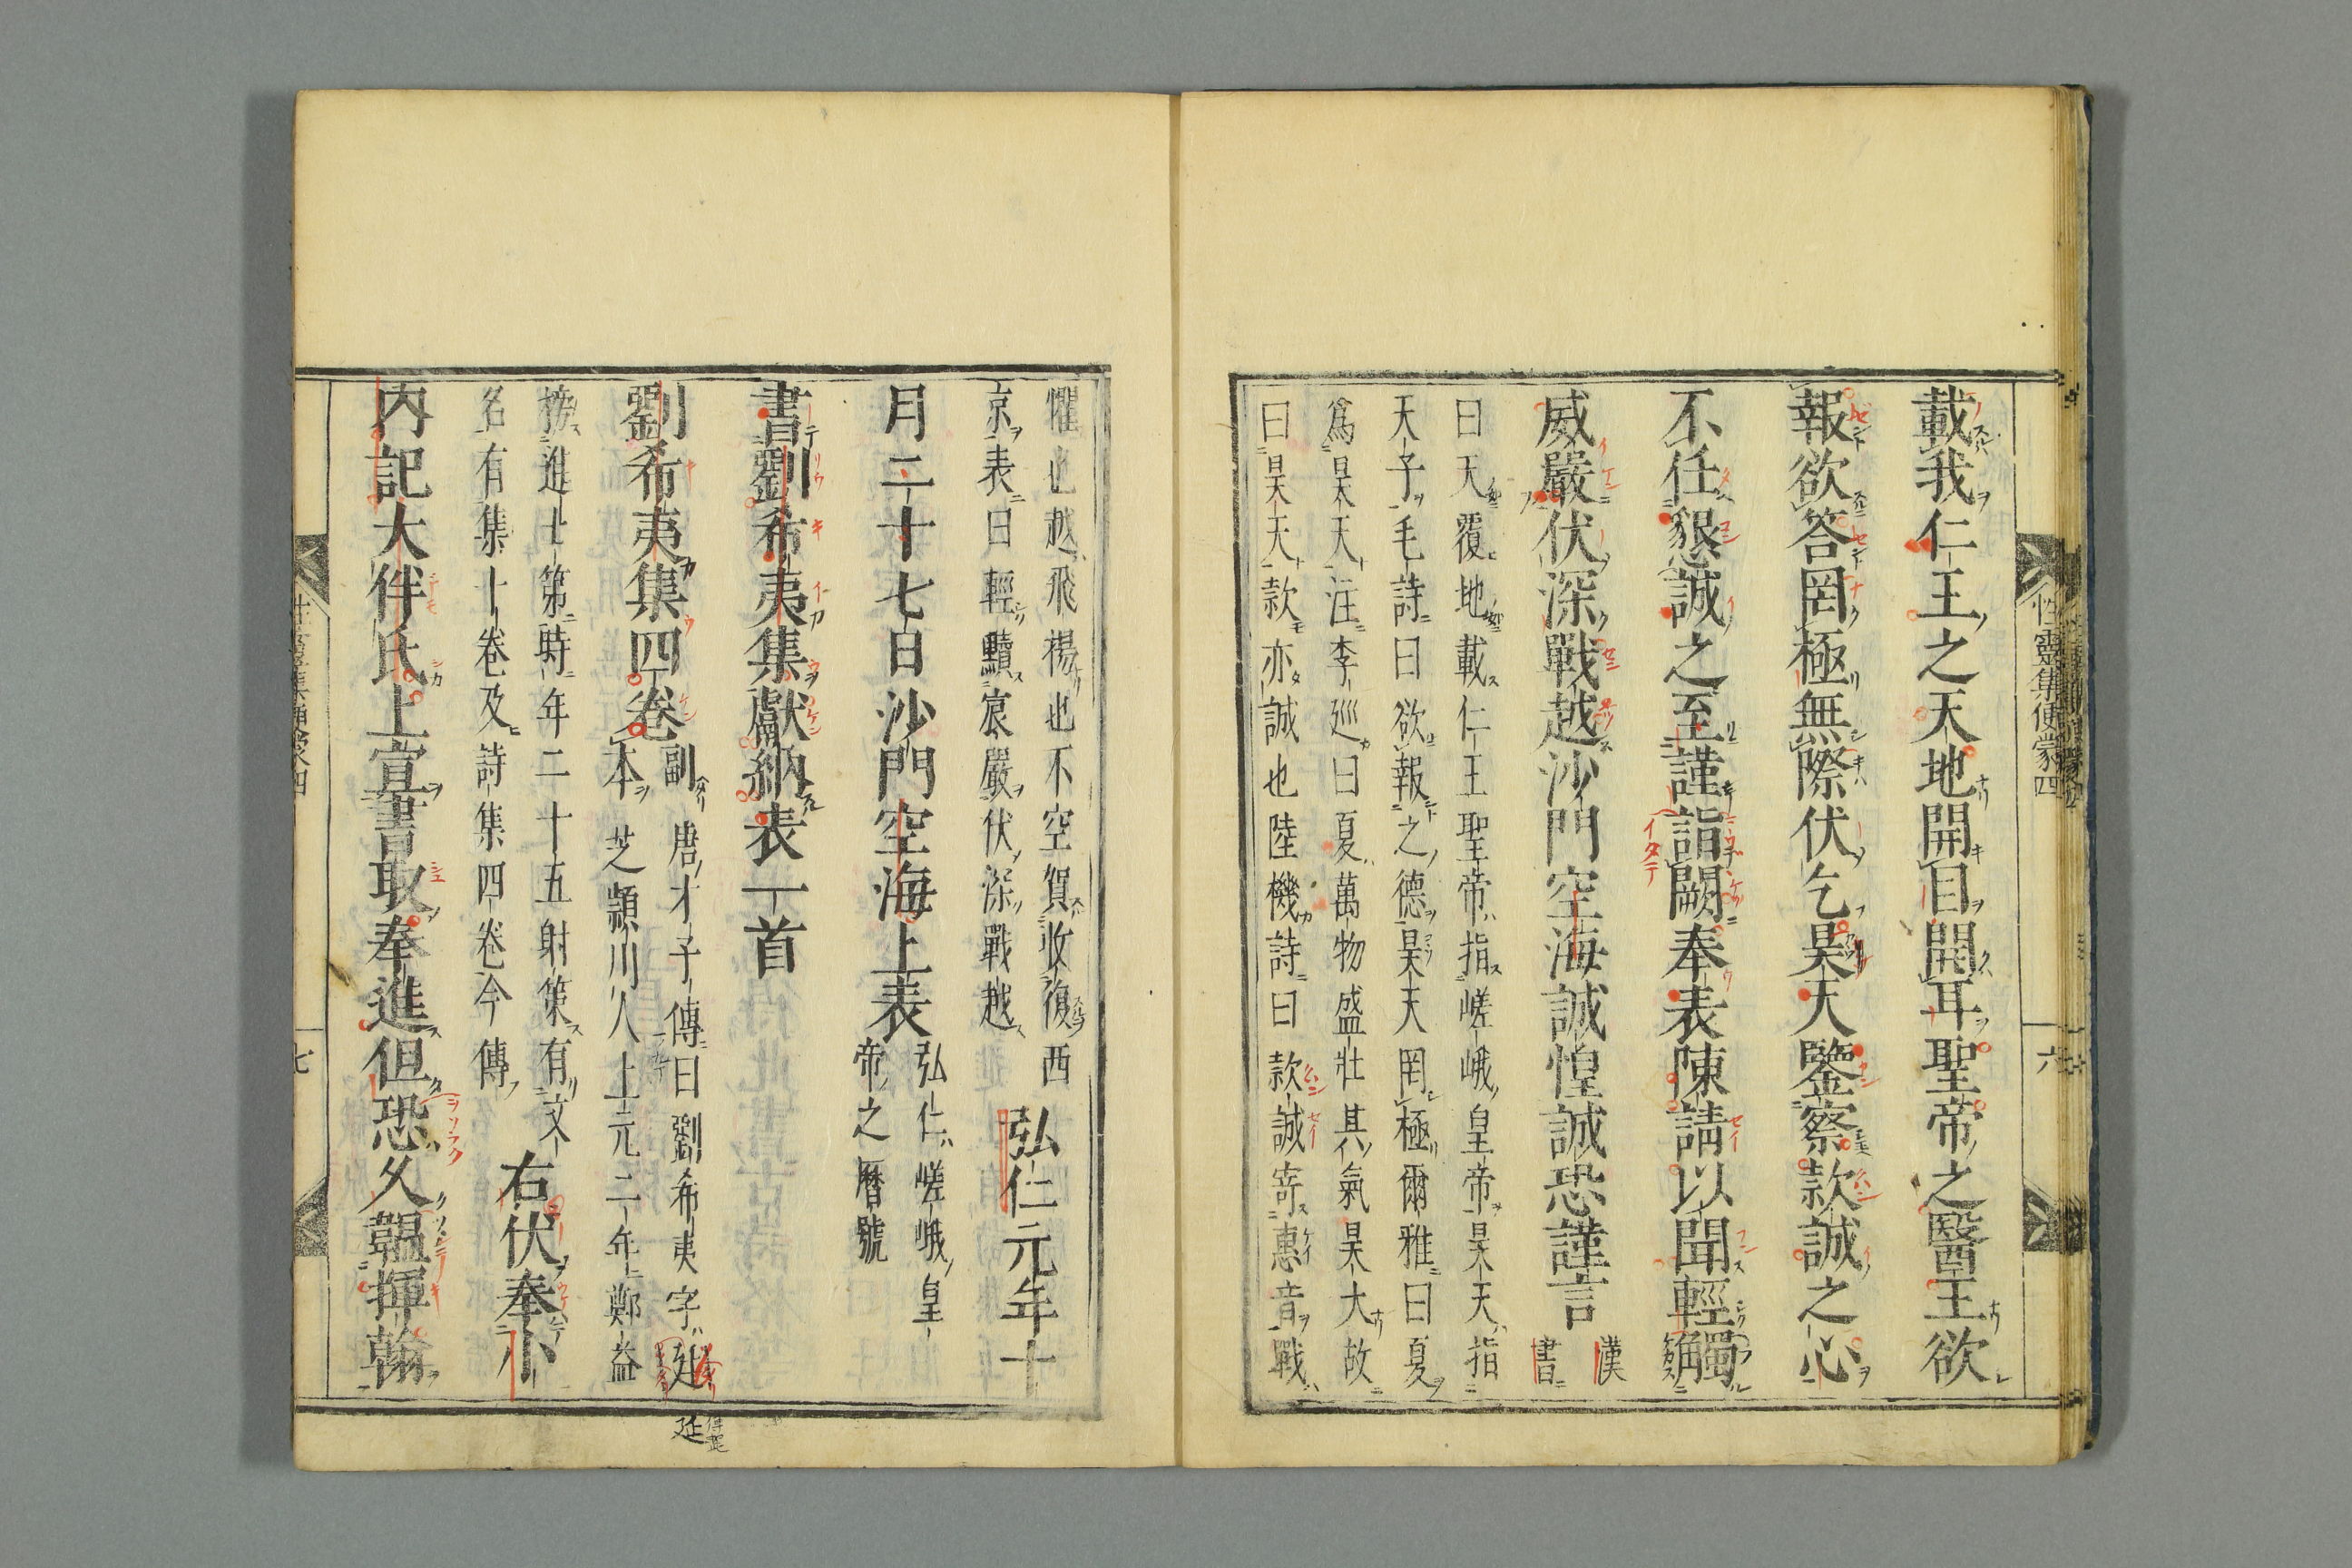 性靈集便蒙四
六
載我仁王之天地開目開耳聖帝之醫王欲
報欲答罔極無際伏乞昊天鑒察款誠之心
不任懇誠之至謹詣闕奉表陳請以聞輕觸
威嚴伏深戰越沙門空海誠惶誠恐謹言
漢
書
曰天覆地載仁王聖帝指嵯峨皇帝昊天指
天子毛詩曰欲報之德昊天罔極爾雅曰夏
爲昊天注李巡曰夏萬物盛壯其氣昊大故
曰昊天款亦誠也陸機詩曰款誠寄惠音戰
懼也越飛楊也不空賀收復西
京表曰輕黷宸嚴伏深戰越
弘仁元年十
月二十七日沙門空海上表
弘仁嵯峨皇
帝之曆號
書劉希夷集獻納表一首
劉希夷集四卷
副
本
唐才子傳曰劉希夷字
芝潁川人上元二年鄭益
延
榜進士第時年二十五射策有文
名有集十卷及詩集四卷今傳
右伏奉小
內記大伴氏上宣書取奉進但恐久韞揮翰
七